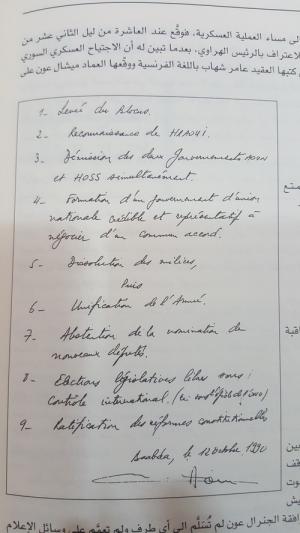 لى مساء العملية العسكرية، فوقّع عند العاشرة من ليل الثاني عشر من
لاعتراف بالرئيس الهراوي، بعدما تبين له أن الاجتياح العسكري السوري
كتبها العقيد عامر شهاب باللغة الفرنسية ووقعها العماد ميشال عون على
1- Levée du Blocus.
2- Reconnaissance de HRAOUI.
3- Démission des deux Gouvernements AOUN
et HOSS simultanément.
4- Formation d'un gouvernement d'union
nationale crédible et représentatif à
négocier d'un commun accord.
5- Dissolution des milices,
Puis
6- Unification de l'Armée.
7- Abstention de la nomination de
nouveaux députés.
8- Elections législatives libres sous
contrôle international.
9- Ratification des réformes constitutionnelles
Baabda, le 12 Octobre 1990
افقة الجنرال عون لم تُسَلَّم إلى أي طرف ولم تعمَّم على وسائل الإعلام